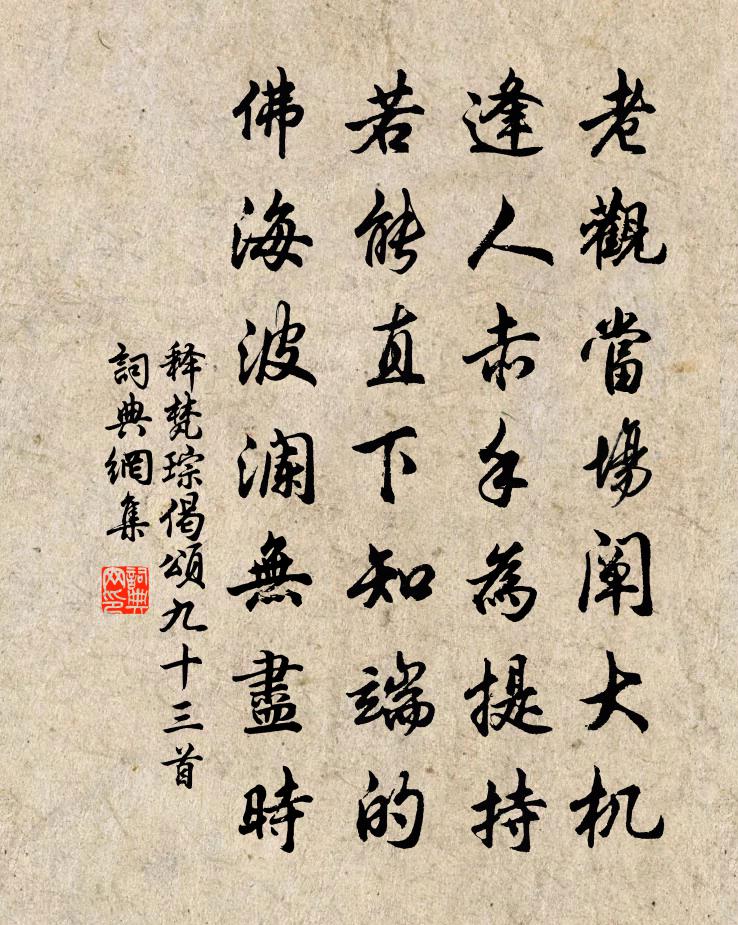 老觀當場闡大机
逢人赤手為提持
若能直下知端的
佛海波瀾無盡時
释梵琮偈頌九十三首
詞典網集
詞典網印